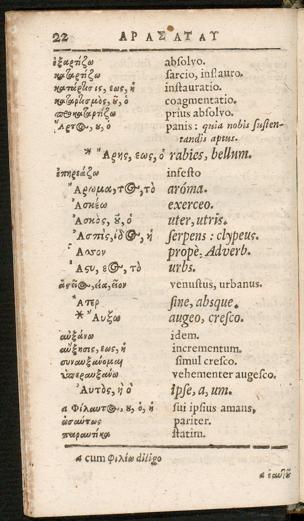 22 ΑΡΑΣΑΤΑΥ
ἐξαρτίζω absolvo.
καταρτίζω sarcio, instauro.
κατάρτισις, εως, ἡ instauratio.
καταρτισμὸς, ȣ͂, ὁ coagmentatio.
προκαταρτίζω prius absolvo.
Ἄρτος, ȣ, ὁ panis: quia nobis susten-
tandis aptus.
* Ἄρης, εως, ὁ rabies, bellum.
ἐπηρεάζω infesto
Ἄρωμα, τος, τὸ aróma.
Ἀσκέω exerceo.
Ἀσκὸς, ȣ͂, ὁ uter, utris.
Ἀσπὶς, ίδος, ἡ serpens: clypeus.
Ἆσσον propè, Adverb.
Ἄςυ, εος, τὸ urbs.
ἀςεῖος, εία, εῖον venustus, urbanus.
Ἄτερ sine, absque.
* Αὔξω augeo, cresco.
αὐξάνω idem.
αὔξησις, εως, ἡ incrementum.
συναυξάνομαι simul cresco.
ὑπεραυξάνω vehementer augesco.
Αὐτὸς, ἡ ὁ ipse, a, um.
a Φίλαυτος, ȣ, ὁ, ἡ sui ipsius amans,
ὡσαύτως pariter.
παραυτίκα statim.
a cum Φιλέω diligo
a ἑαυτȣ͂